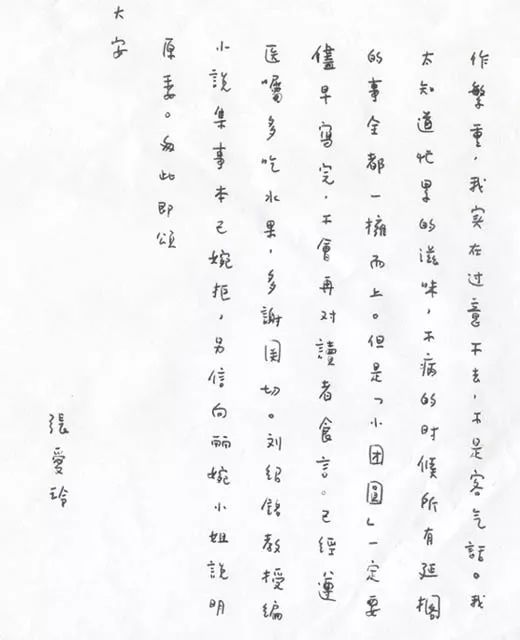 作繁重，我实在过意不去，不是客气話。我
太知道忙累的滋味，不病的时候所有延擱
的事全都一擁而上。但是「小团圓」一定要
儘早寫完，不會再对讀者食言。已經遵
医囑多吃水果，多謝関切。刘紹銘教授編
小說集事本已婉拒，另信向丽婉小姐說明
原委。匆此即頌
大安
張愛玲